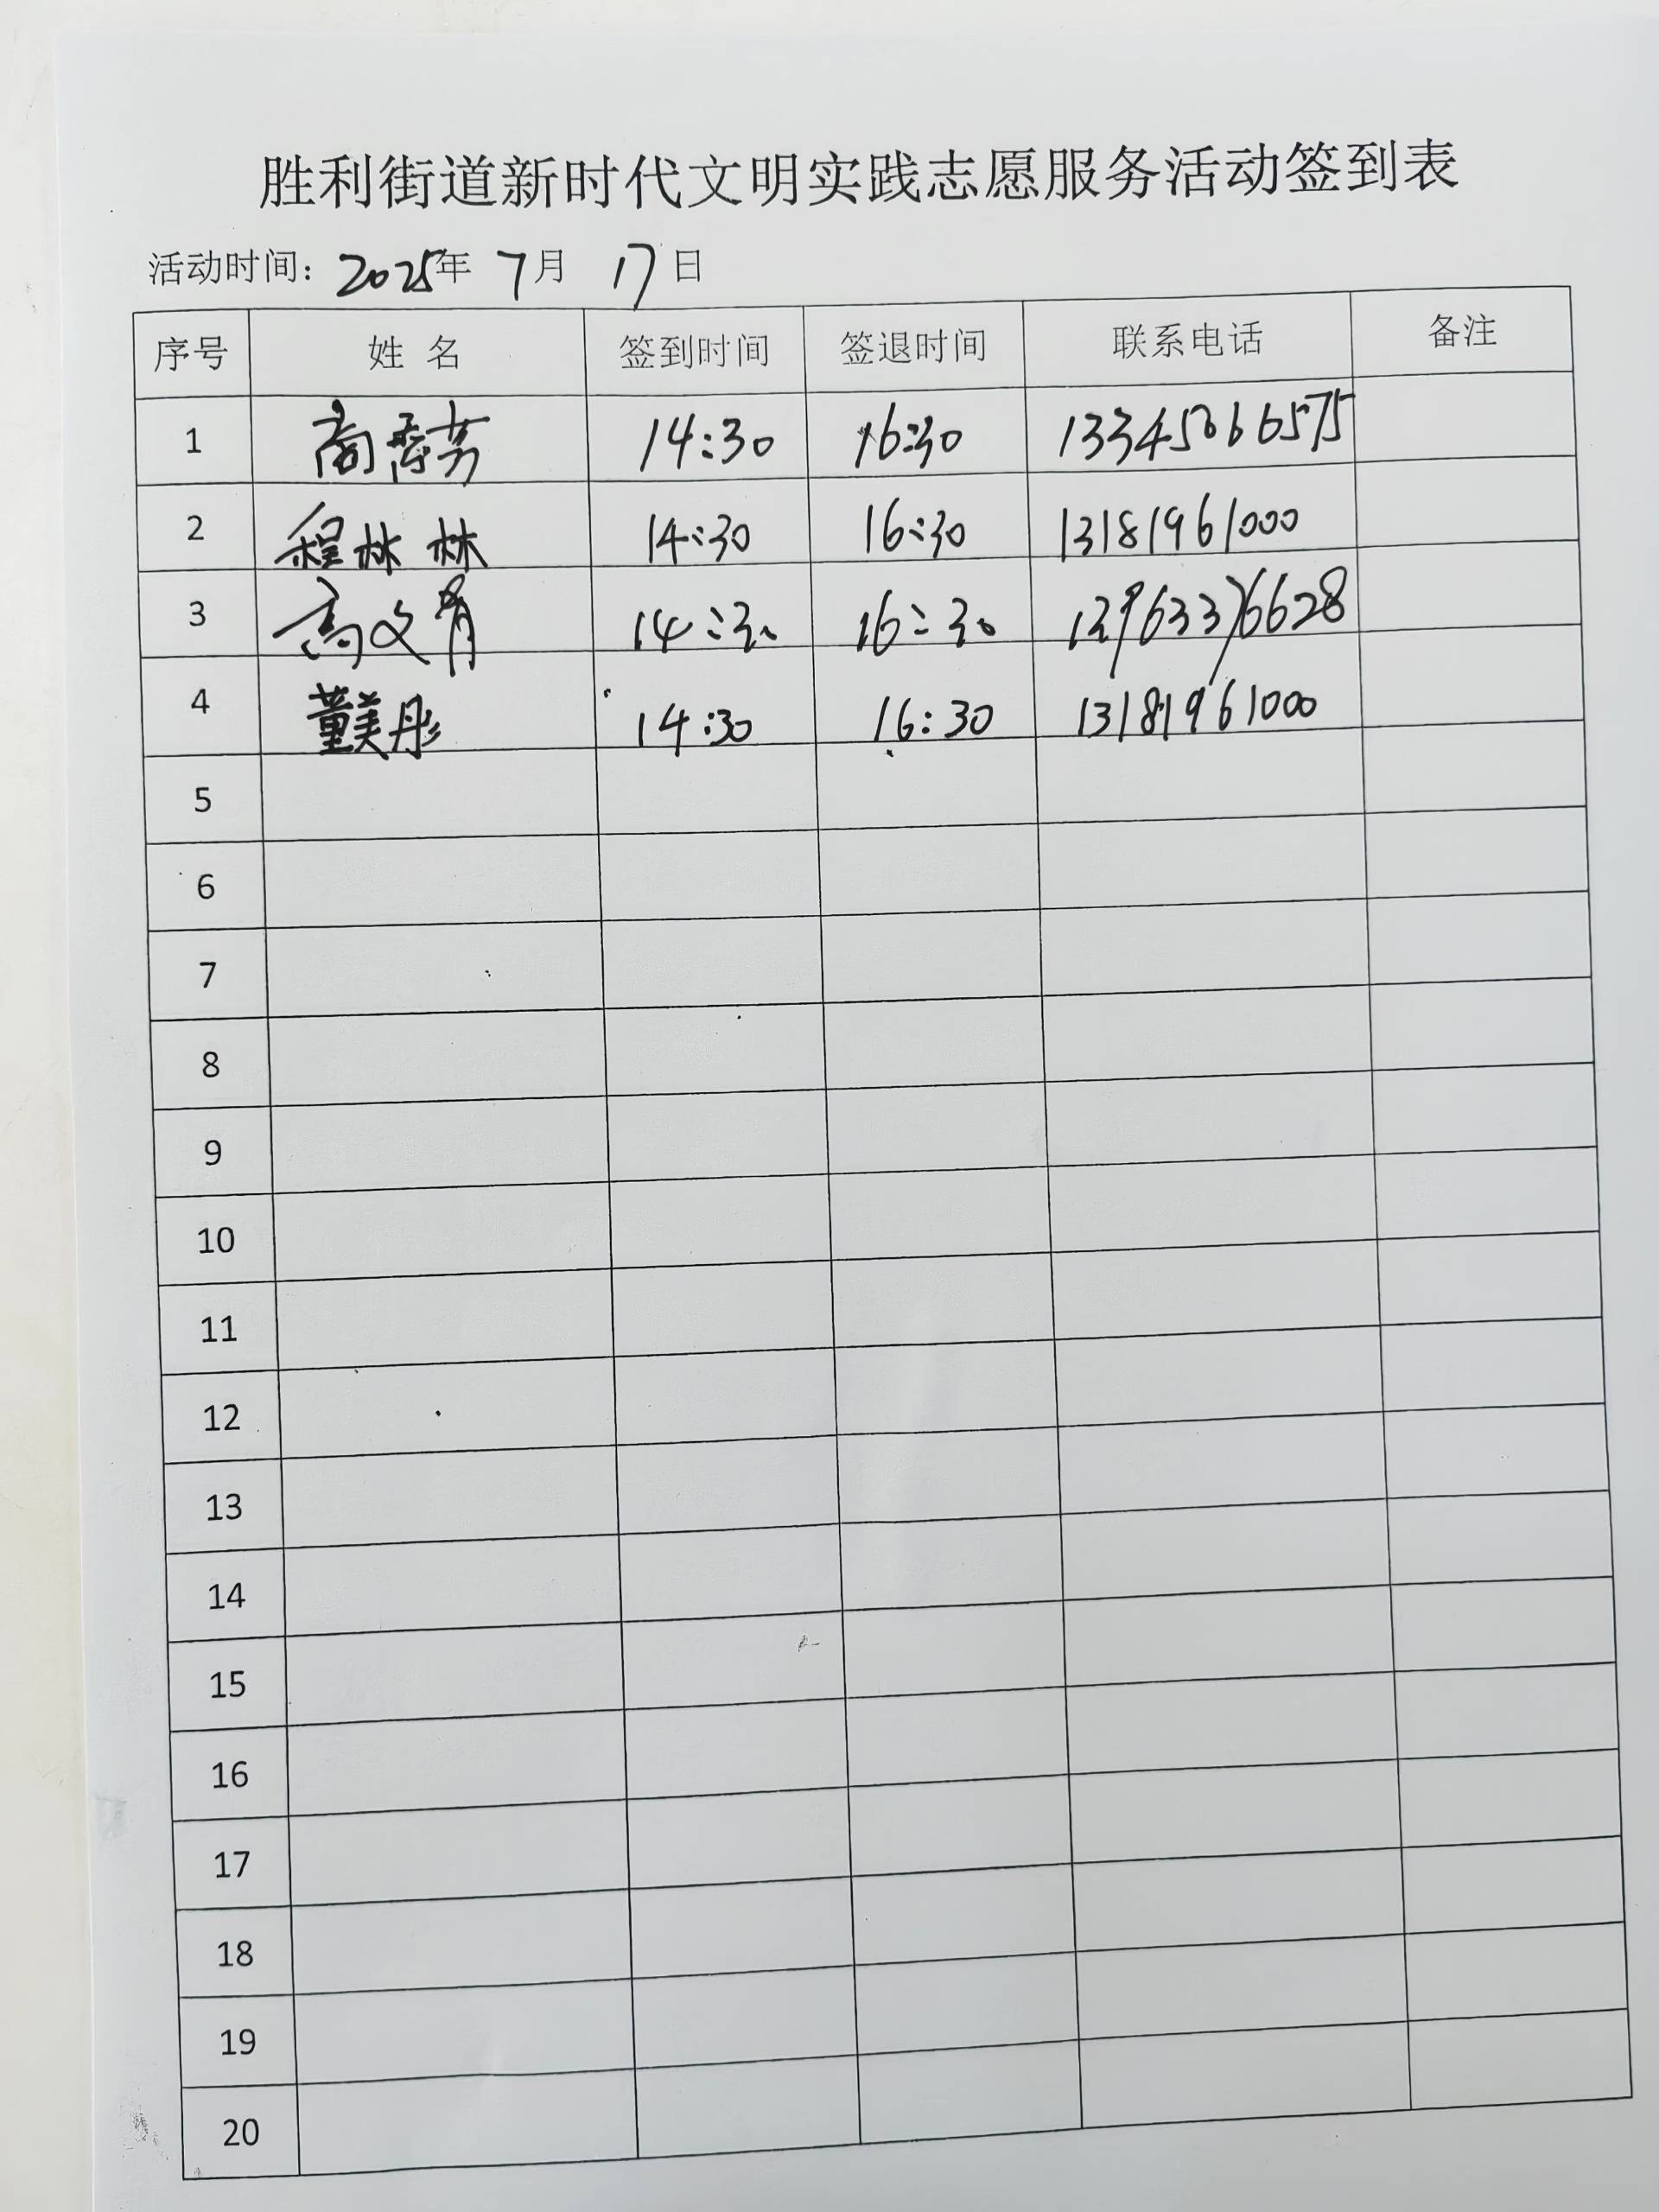 胜利街道新时代文明实践志愿服务活动签到表
活动时间：2025年 7月 17日
序号 姓 名 签到时间 签退时间 联系电话 备注
1 14:30 16:30 13345066575
2 程林林 14:30 16:30 13181961000
3 高文青 14:30 16:30
4 董美彤 14:30 16:30 13181961000
5
6
7
8
9
10
11
12
13
14
15
16
17
18
19
20